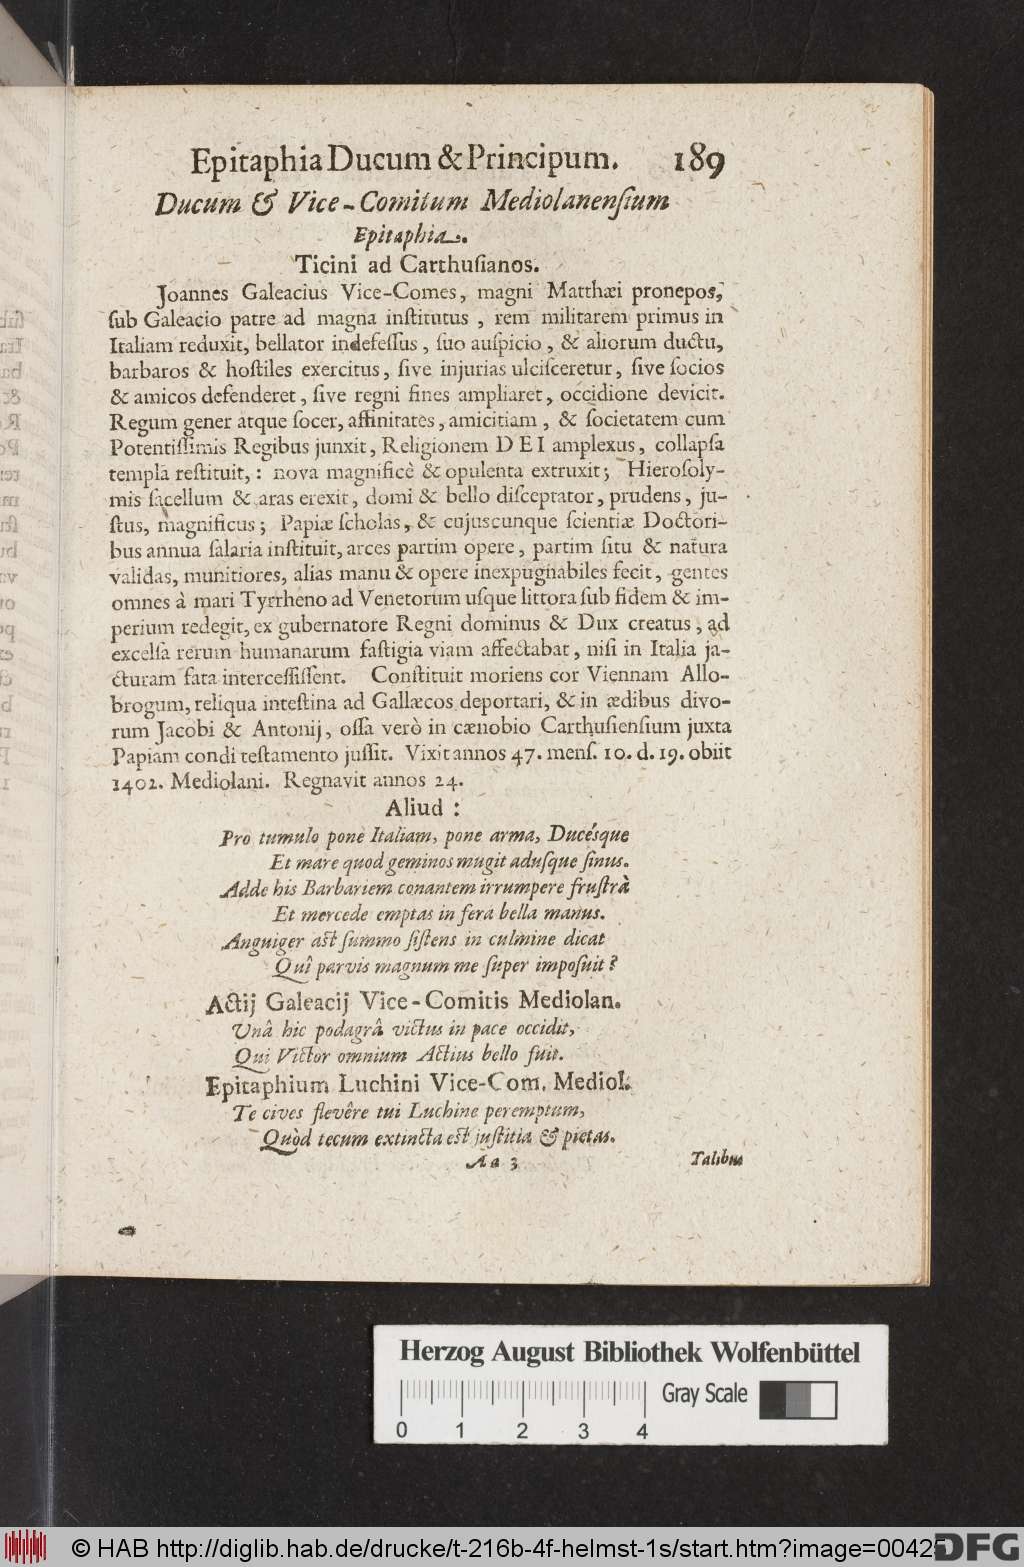 Epitaphia Ducum & Principum. 189
Ducum & Vice-Comitum Mediolanenſium
Epitaphia.
Ticini ad Carthuſianos.
Joannes Galeacius Vice-Comes, magni Matthæi pronepos,
ſub Galeacio patre ad magna inſtitutus, rem militarem primus in
Italiam reduxit, bellator indefeſſus, ſuo auſpicio, & aliorum ductu,
barbaros & hoſtiles exercitus, ſive injurias ulciſceretur, ſive ſocios
& amicos defenderet, ſive regni fines ampliaret, occidione devicit.
Regum gener atque ſocer, affinitates, amicitiam, & ſocietatem cum
Potentiſſimis Regibus junxit, Religionem DEI amplexus, collapſa
templa reſtituit,: nova magnificè & opulenta extruxit; Hieroſoly-
mis ſacellum & aras erexit, domi & bello diſceptator, prudens, ju-
ſtus, magnificus; Papiæ ſcholas, & cujuscunque ſcientiæ Doctori-
bus annua ſalaria inſtituit, arces partim opere, partim ſitu & natura
validas, munitiores, alias manu & opere inexpugnabiles fecit, gentes
omnes à mari Tyrrheno ad Venetorum uſque littora ſub fidem & im-
perium redegit, ex gubernatore Regni dominus & Dux creatus, ad
excelſa rerum humanarum faſtigia viam affectabat, niſi in Italia ja-
cturam fata interceſſiſſent. Conſtituit moriens cor Viennam Allo-
brogum, reliqua inteſtina ad Gallæcos deportari, & in ædibus divo-
rum Jacobi & Antonij, oſſa verò in cænobio Carthuſienſium juxta
Papiam condi teſtamento juſſit. Vixit annos 47. menſ. 10. d. 19. obiit
1402. Mediolani. Regnavit annos 24.
Aliud:
Pro tumulo pone Italiam, pone arma, Ducésque
Et mare quod geminos mugit aduſque ſinus.
Adde his Barbariem conantem irrumpere fruſtrà
Et mercede emptas in fera bella manus.
Anguiger aſt ſummo ſiſtens in culmine dicat
Quî parvis magnum me ſuper impoſuit?
Actij Galeacij Vice-Comitis Mediolan.
Unâ hic podagrâ victus in pace occidit,
Qui Victor omnium Actius bello fuit.
Epitaphium Luchini Vice-Com. Mediol.
Te cives flevêre tui Luchine peremptum,
Quòd tecum extincta eſt juſtitia & pietas.
Aa 3 Talibus
Herzog August Bibliothek Wolfenbüttel
Gray Scale
0 1 2 3 4
© HAB http://diglib.hab.de/drucke/t-216b-4f-helmst-1s/start.htm?image=00425
DFG